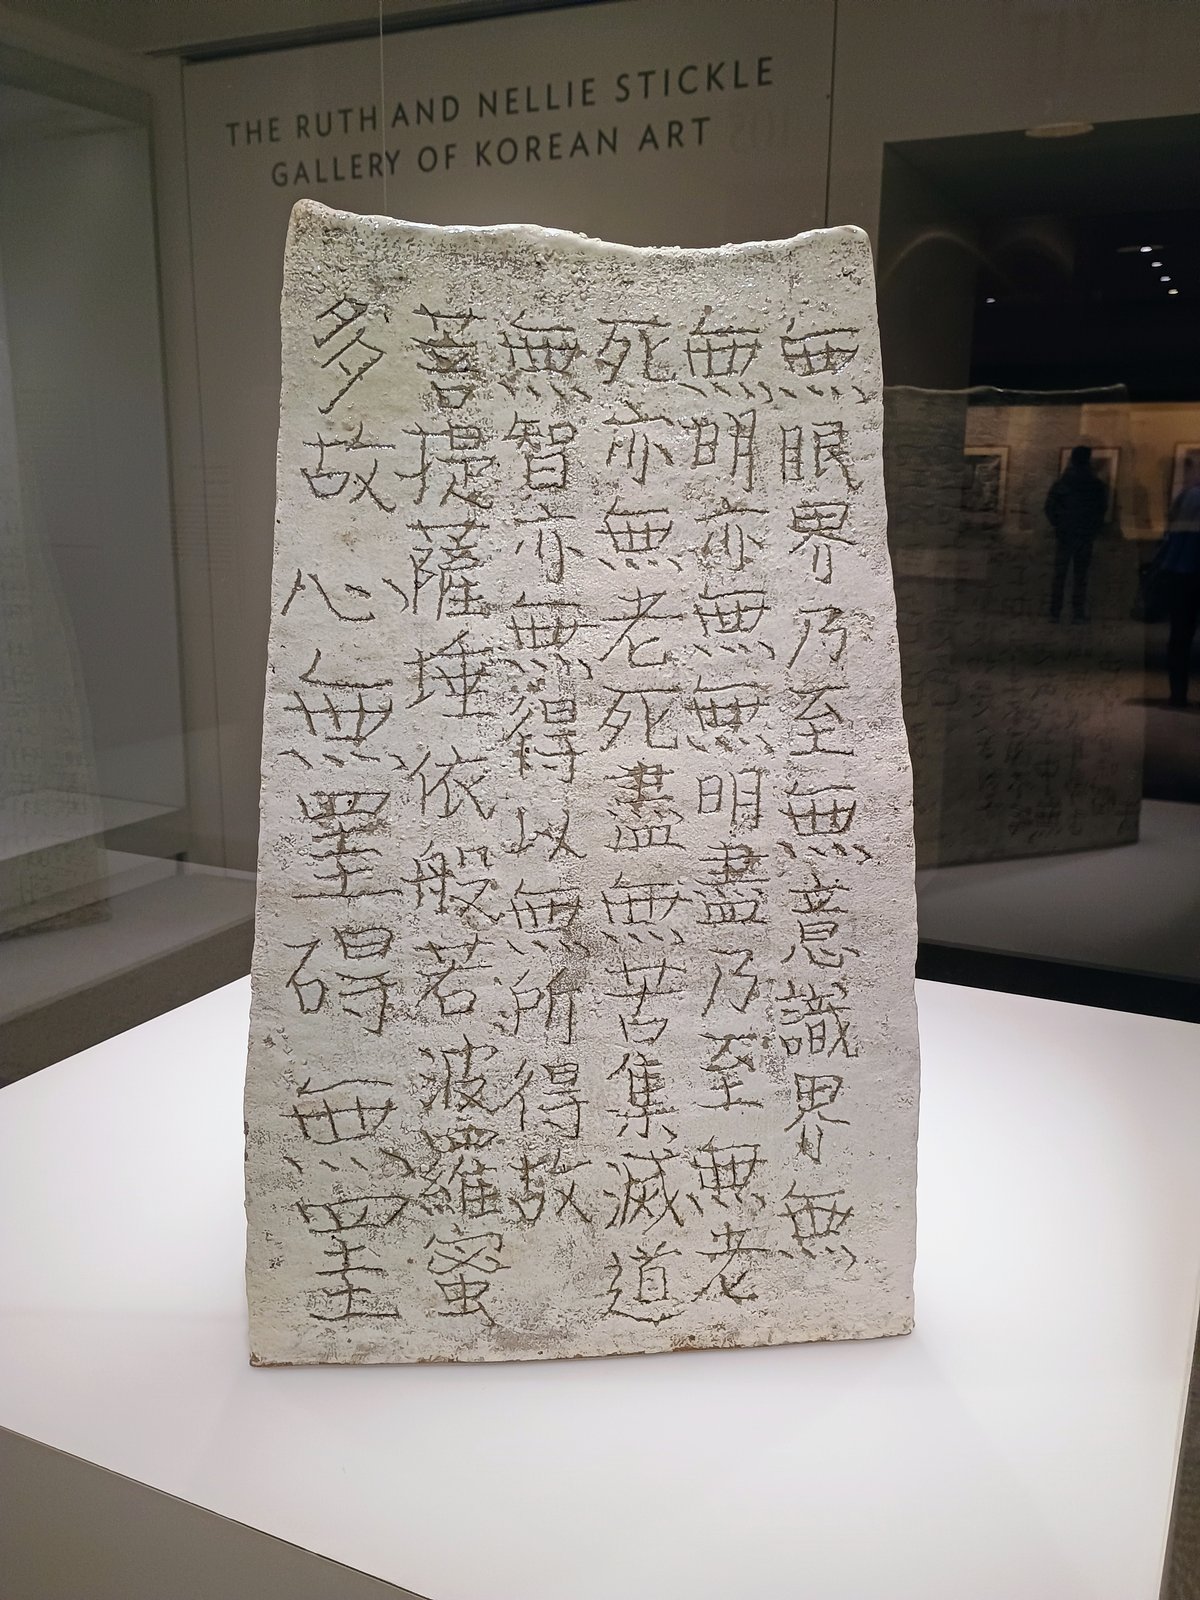 THE RUTH AND NELLIE STICKLE
GALLERY OF KOREAN ART
無眼界乃至無意識界無
無明亦無無明盡乃至無老
死亦無老死盡無苦集滅道
無智亦無得以無所得故
菩提薩埵依般若波羅蜜
多故心無罣碍無罣